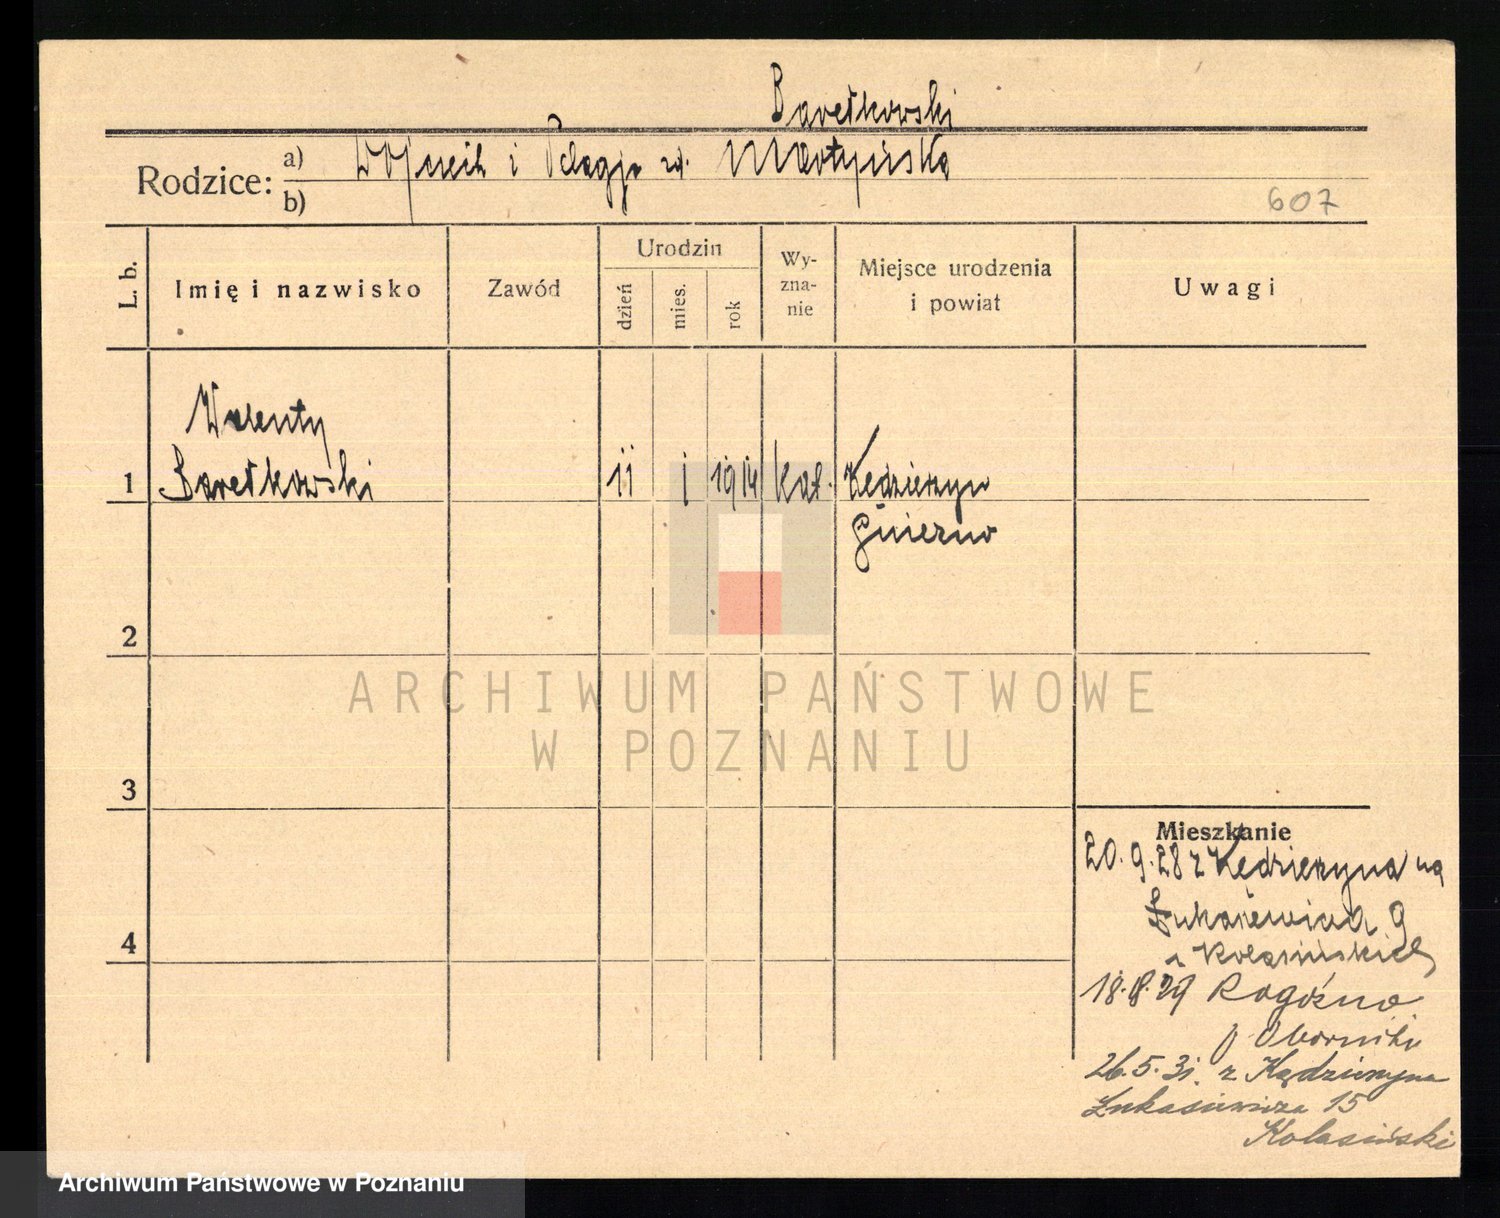 Baretkowski
Rodzice: a) Wojciech i Pelagja zd. Martyńska
b)
607
L. b.
Imię i nazwisko
Zawód
Urodzin
dzień
mies.
rok
Wy-
zna-
nie
Miejsce urodzenia
i powiat
Uwagi
Walenty
1 Baretkowski 11 I 1914 kat. Kędzierzyn
Gniezno
2
ARCHIWUM PAŃSTWOWE
W POZNANIU
3
Mieszkanie
20. 9. 28 z Kędzierzyna na
9
4
Rogóźno
p Oborniki
26. 5. 31. z Kędzierzyna
Łukasiewicza 15
Kolasiński
Archiwum Państwowe w Poznaniu